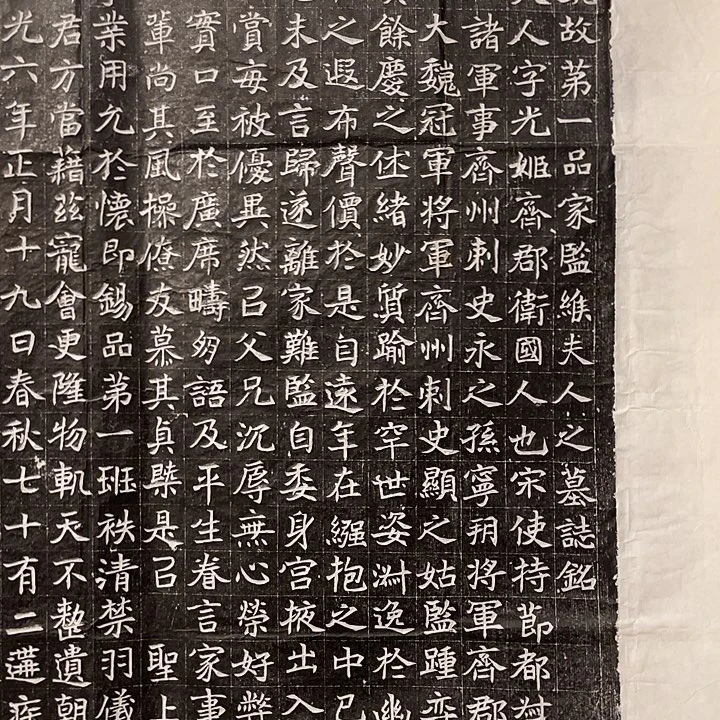 故第一品家監緱夫人之墓誌銘
人字光姬齊郡衛國人也宋使持節都
諸軍事齊州刺史永之孫寧朔將軍齊郡
大魏冠軍將軍齊州刺史顯之姑監踵弈
餘慶之休緒妙質踰於罕世姿淵逸於幽
之遐布聲價於是自遠年在繈抱之中已
未及言歸遂離家難監自委身宮掖出入
賞每被優異然已父兄沉辱無心榮好弊
實口至於廣席疇語及平生眷言家事
輩尚其風操僚友慕其貞槩是已 聖上
業用允於懷即錫品第一班袟清禁羽儀
君方當藉茲寵會更隆物軌天不整遺朝
光六年正月十九日春秋七十有二遘疾